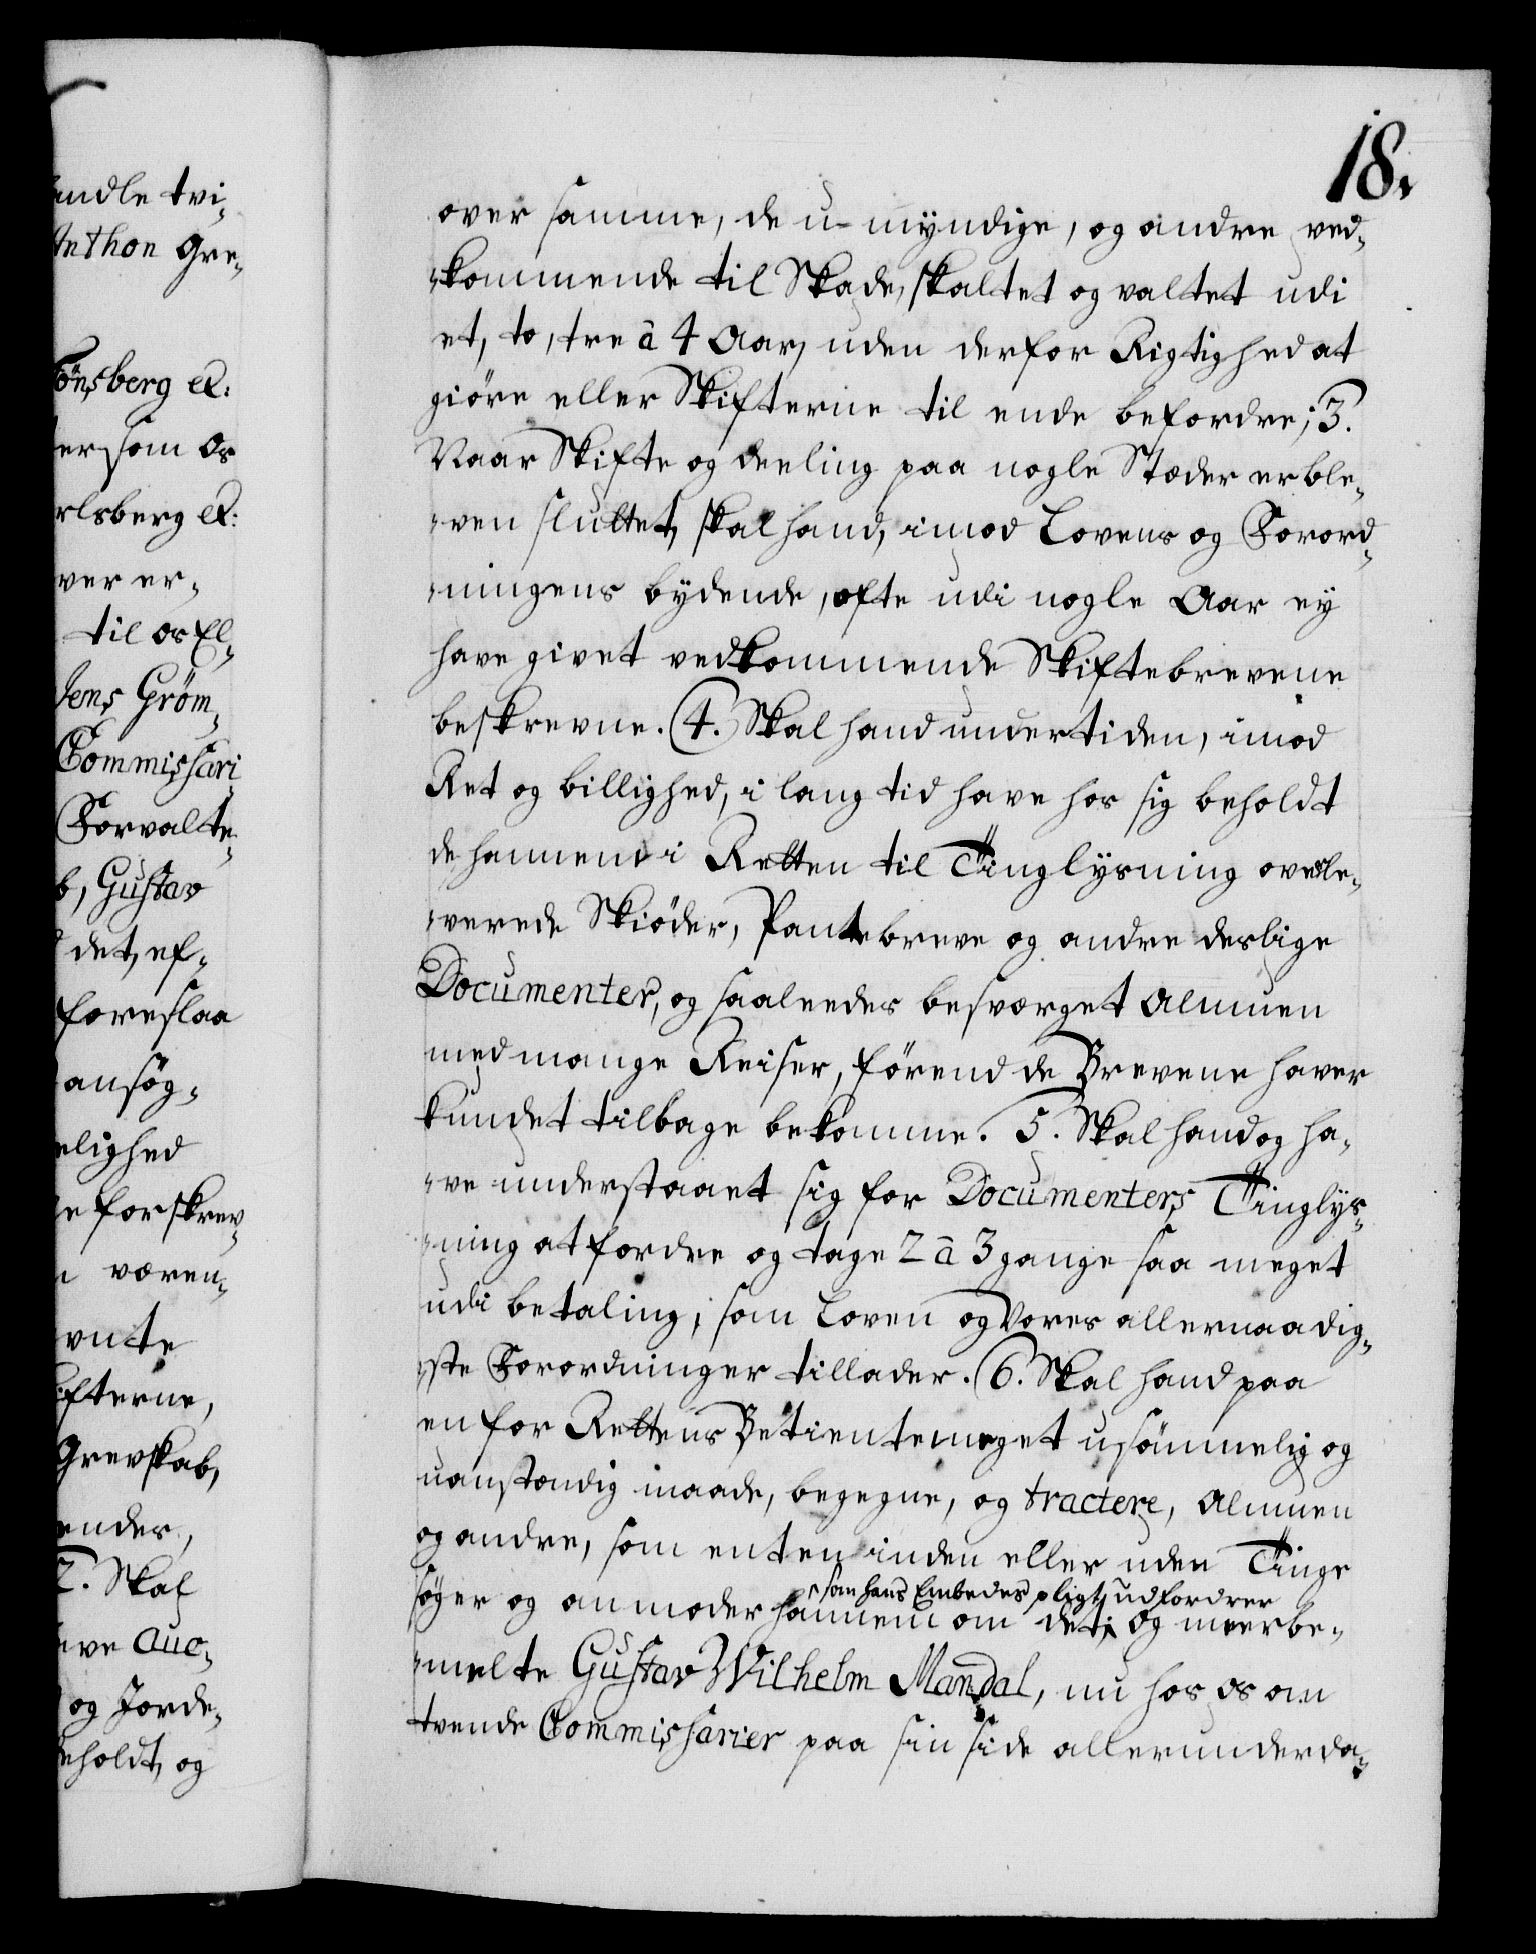 andle tvi,
Anthon Gre,
Tönsberg etc:
ersom Os
rlsberg etc:
ver er,
til os El,
Jens Gröm,
Commissari
Forvalte,
b, Gustav
det, ef,
foreslaa
ansøg,
elighed
e forskrev,
væren,
vnte
ifterne,
Grevskab,
ender,
2. Skal
ve Auc,
og Jorde,
eholdt, og
18.
over samme, de u-myndige, og andre ved,
kommende til Skade, skaltet og valtet udi
et, to, tre à 4 Aar, uden derfor Rigtighed at
giöre eller Skifterne til ende befordre; 3.
Naar Skifte og deeling paa nogle Stæder er ble,
ven sluttet, skal hand, imod Lovens og Forord,
ningens bydende, ofte udi nogle Aar ey
have givet vedkommende Skiftebrevene
beskrevne. 4. Skal hand undertiden, imod
Ret og billighed, i lang tid have hos sig beholdt
de hannem i Retten til Tinglysning overle,
verede Skiöder, Pantebreve og andre deslige
Documenter, og saaleedes besværget Almuen
med mange Reiser, förend de Brevene haver
kundet tilbage bekomme. 5. Skal hand og ha,
ve understaaet sig for Documenters Tinglys,
ning at fordre og tage 2 à 3 gange saa meget
udi betaling, som Loven og Vores allernaadig,
ste Forordninger tillader. 6. Skal hand paa
en for Rettens Betiente meget usömmelig og
uanstændig maade, begegne, og tractere, Almuen
og andre, som enten inden eller uden Tinge
söger og anmoder hannem om det, som hans Embedes pligt udfordrer
Og meerbe,
melte Gustav Wilhelm Mandal, nu hos os om
tvende Commissarier paa sin side allerunderda,